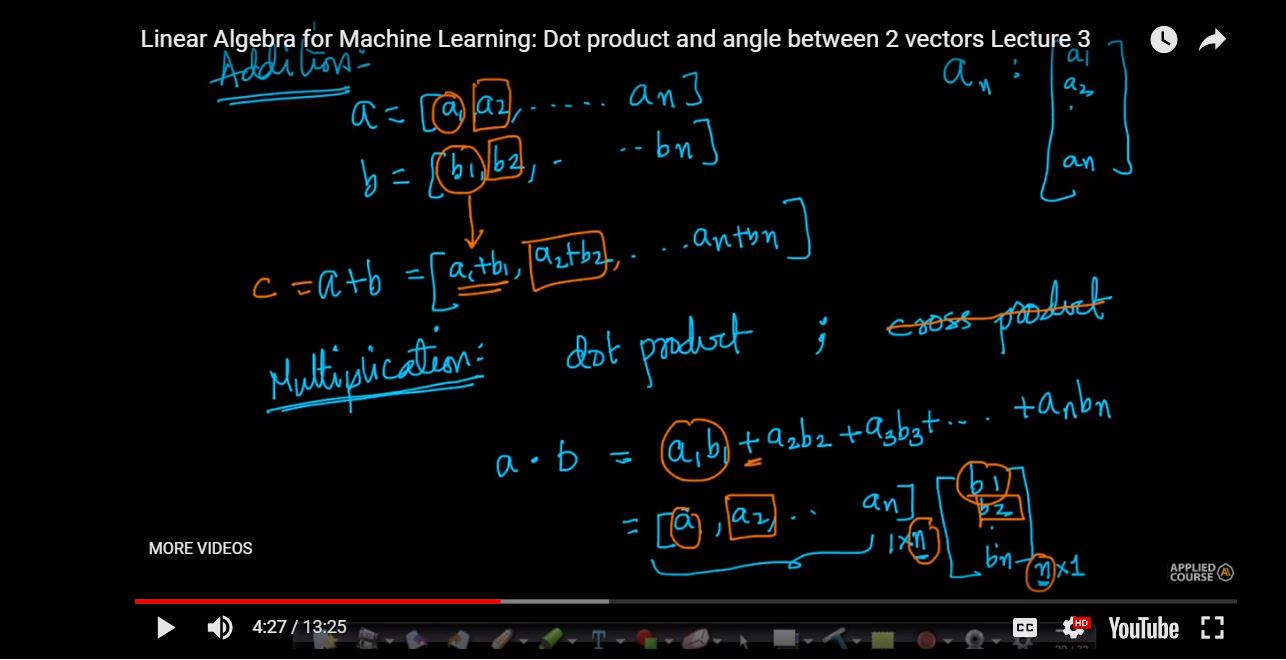 Linear Algebra for Machine Learning: Dot product and angle between 2 vectors Lecture 3
Addition:-
a = [a1, a2, ..... an]
an : [a1
a2
.
an]
b = [b1, b2, . .. bn]
c = a+b = [a1+b1, a2+b2, . . . an+bn]
Multiplication:- dot product ; cross product
a . b = a1b1 + a2b2 + a3b3 + ... . + anbn
= [a, a2, .. an] 1×n [b1
b2
.
bn] n×1
MORE VIDEOS
APPLIED
COURSE
4:27 / 13:25
CC
HD
YouTube
T